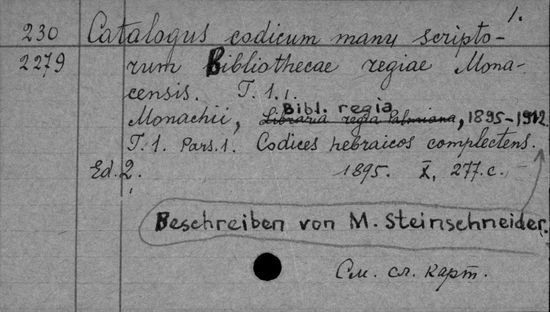 1.
230 Catalogus codicum many scripto-
2279 rum Bibliothecae regiae Mona-
censis. T. 1.
Bibl. regia
Monachii, Libraria regia Palmiana, 1895-1912
T. 1. Pars. 1. Codices hebraicos complectens.
Ed. 2. 1895. X, 277 c.
Beschreiben von M. Steinschneider.
См. сл. карт.